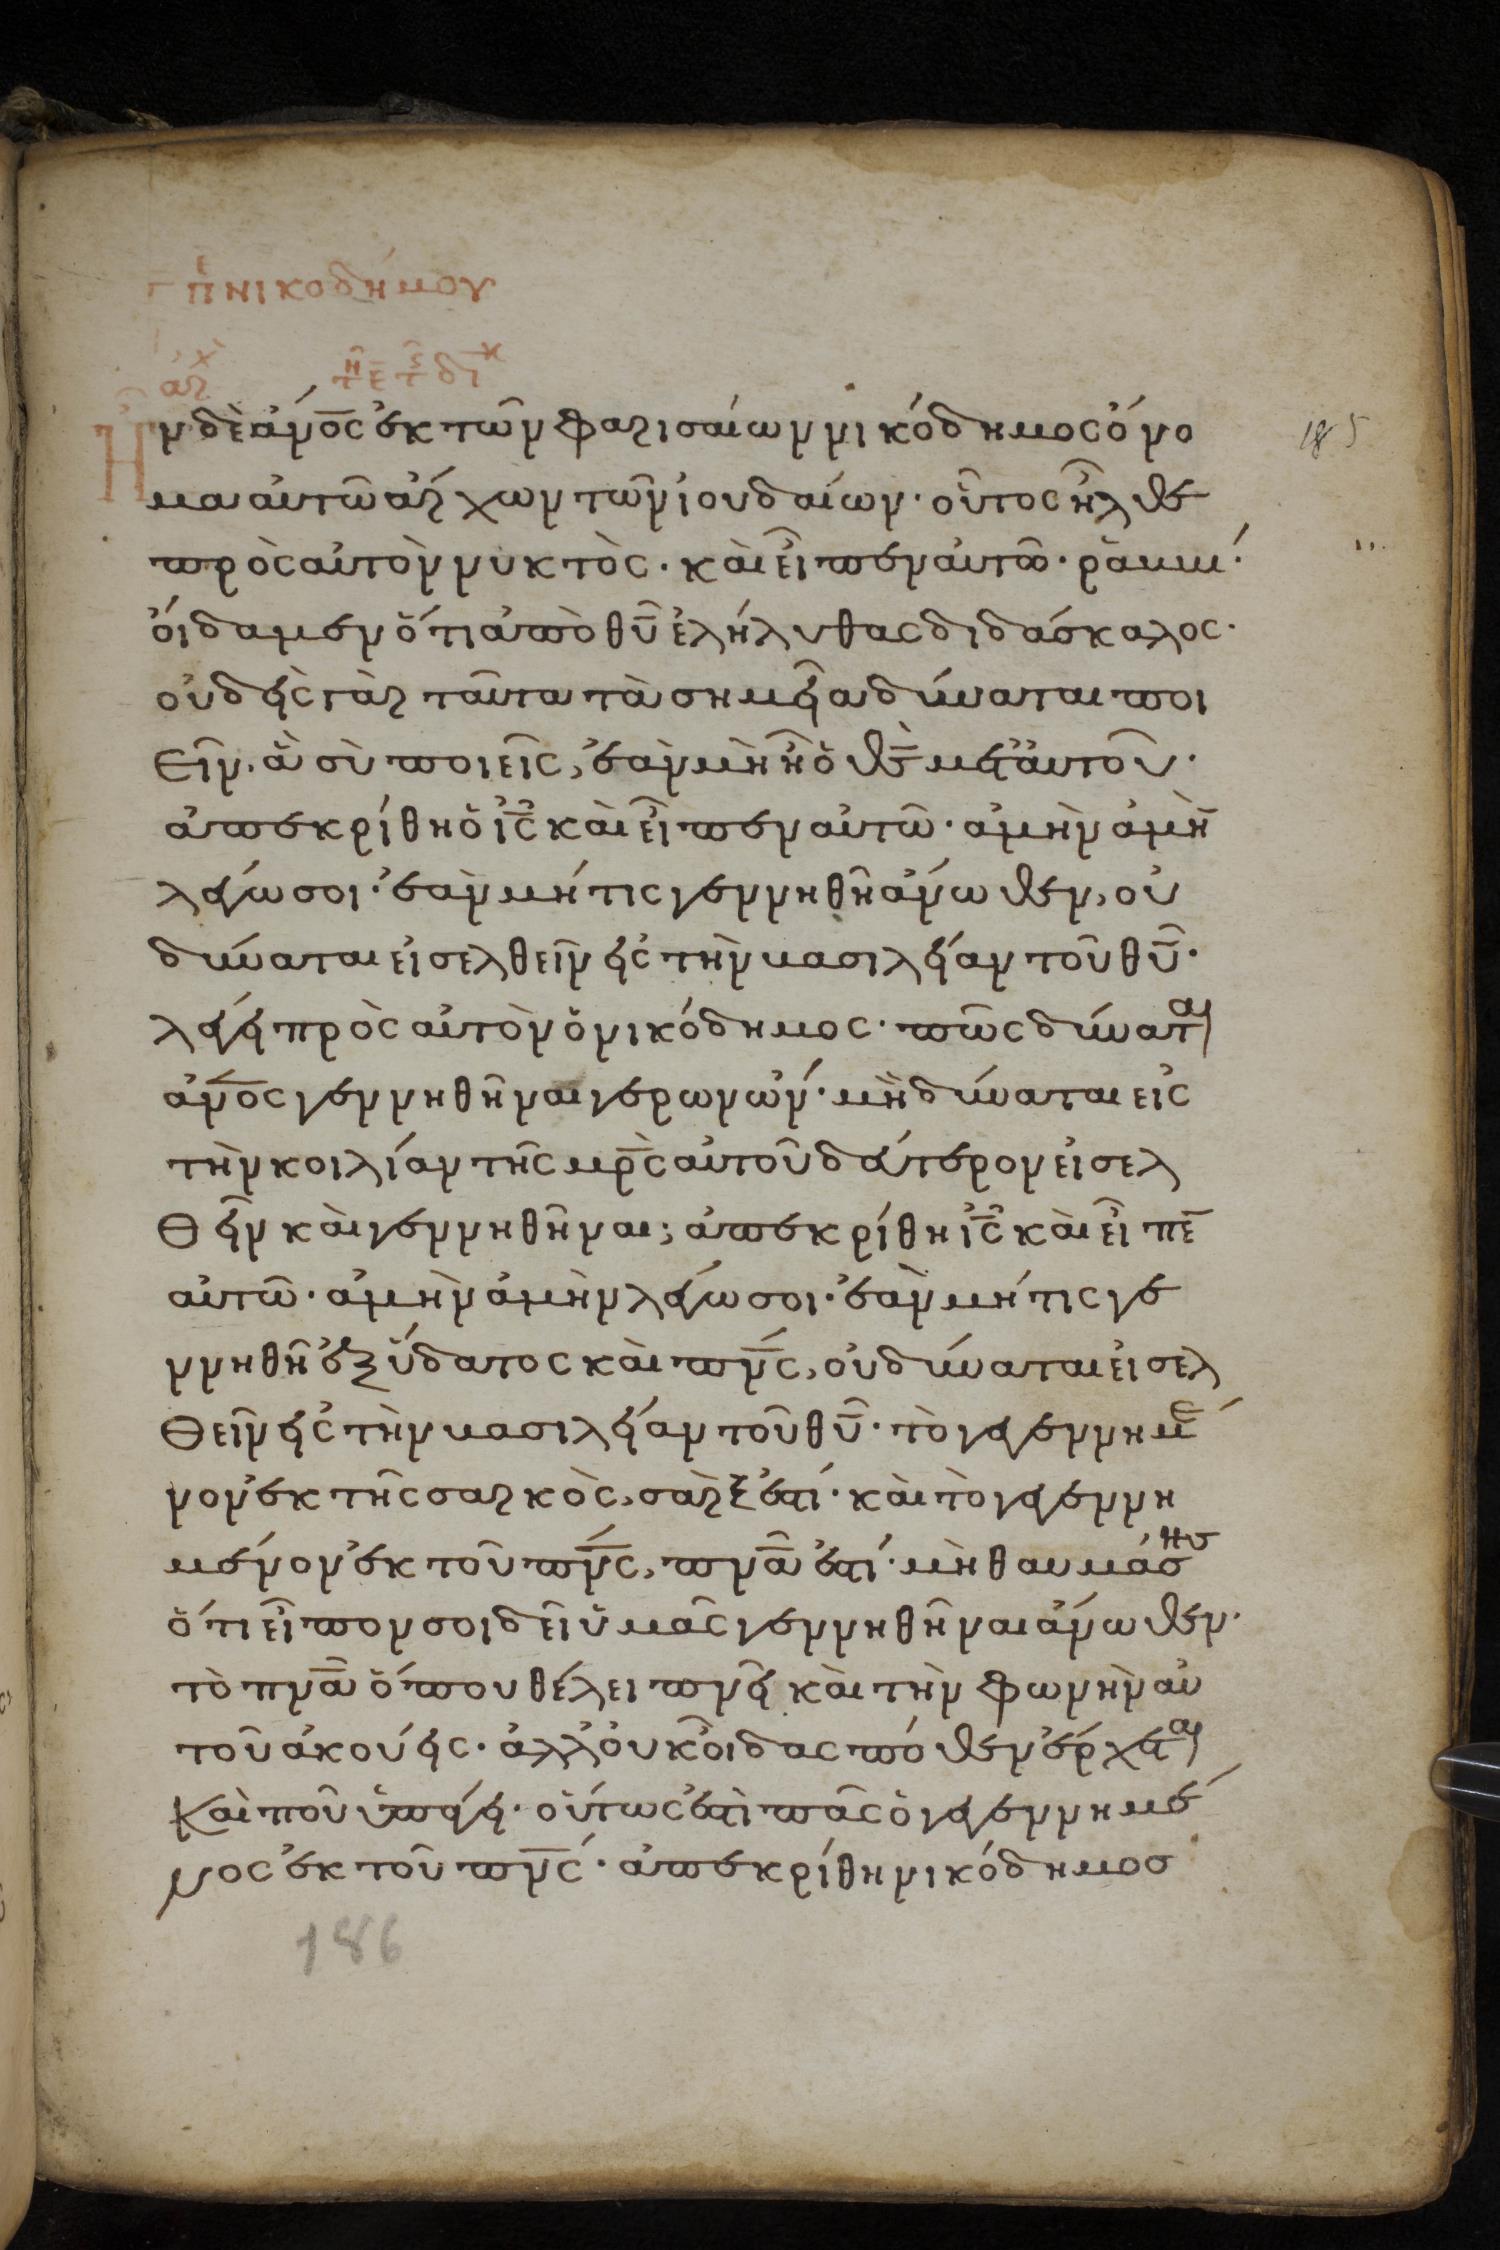 Γ πε νικοδήμου
ἀρχ τῆ ε τς δικ
Ἦν δὲ ἄν̅ο̅ς ἐκ τῶν φαρισαίων νικόδημος ὄνο
μα αὐτῶ ἄρχων τῶν ἰουδαίων· οὗτος ἦλθε
πρὸς αὐτὸν νυκτὸς· καὶ εἶπεν αὐτῶ· ῥαββί·
οἴδαμεν ὅτι ἀπὸ θ̅υ̅ ἐλήλυθας διδάσκαλος·
οὐδεὶς γὰρ ταῦτα τὰ σημεῖα δύναται ποι
εῖν, ἃ σὺ ποιεῖς, ἐὰν μὴ ἦ ὁ θ̅ς̅ μετ' αὐτοῦ·
ἀπεκρίθη ὁ ι̅ς̅ καὶ εἶπεν αὐτῶ· ἀμὴν ἀμὴ̅
λέγω σοι· ἐὰν μή τις γεννηθῆ ἄνωθεν, οὐ
δύναται εἰσελθεῖν εἰς τὴν βασιλείαν τοῦ θ̅υ̅·
λέγει πρὸς αὐτὸν ὁ νικόδημος· πῶς δύναται
ἄν̅ο̅ς γεννηθῆναι γέρων ὤν· μὴ δύναται εἰς
τὴν κοιλίαν τῆς μ̅ρ̅ς̅ αὐτοῦ δεύτερον εἰσελ
θεῖν καὶ γεννηθῆναι; ἀπεκρίθη ι̅ς̅ καὶ εἶπε̅
αὐτῶ· ἀμὴν ἀμὴν λέγω σοι· ἐὰν μή τις γε
ννηθῆ ἐξ ὕδατος καὶ π̅ν̅ς̅, οὐ δύναται εἰσελ
θεῖν εἰς τὴν βασιλείαν τοῦ θ̅υ̅· τὸ γεγεννημέ
νον ἐκ τῆς σαρκὸς, σὰρξ ἐστί· καὶ τὸ γεγεννη
μένον ἐκ τοῦ π̅ν̅ς̅, π̅ν̅α̅ ἐστί· μὴ θαυμάσης
ὅτι εἶπον σοι δεῖ ὑμᾶς γεννηθῆναι ἄνωθεν·
τὸ π̅ν̅α̅ ὅπου θέλει πνεῖ καὶ τὴν φωνὴν αὐ
τοῦ ἀκούεις· ἀλλ' οὐκ οἶδας πόθεν ἔρχεται
καὶ ποῦ ὑπάγει· οὕτως ἐστὶ πᾶς ὁ γεγεννημέ
νος ἐκ τοῦ π̅ν̅ς̅· ἀπεκρίθη νικόδημος
185
186